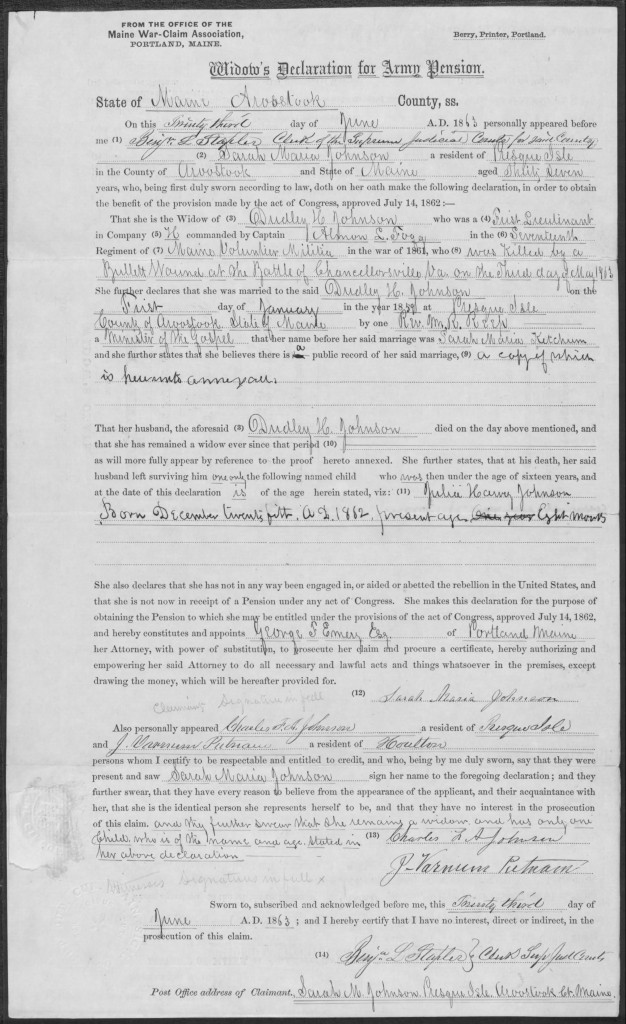 FROM THE OFFICE OF THE
Maine War-Claim Association,
PORTLAND, MAINE.
Berry, Printer, Portland.
Widow's Declaration for Army Pension.
State of Maine Aroostook County, ss.
On this Twenty third day of June A.D. 1863 personally appeared before
me (1) Benj. L Staples Clerk of the Supreme Judicial Court for said County
(2) Sarah Maria Johnson a resident of Presque Isle
in the County of Aroostook and State of Maine aged Seven
years, who, being first duly sworn according to law, doth on her oath make the following declaration, in order to
obtain the benefit of the provision made by the act of Congress, approved July 14, 1862:—
That she is the Widow of (3) Dudley H. Johnson who was a (4) First Lieutenant
in Company (5) H commanded by Captain Almon L. Fogg in the (6) Seventeenth
Regiment of (7) Maine Volunteer Militia in the war of 1861, who (8) was killed by a
Bullet Wound at the Battle of Chancellorsville Va. on the Third day of May 1863
She further declares that she was married to the said Dudley H. Johnson on the
First day of January in the year at Presque Isle
County of Aroostook State of Maine by one Rev. Wm. K. Keep
a Minister of the Gospel that her name before her said marriage was Sarah Maria Ketchum
and she further states that she believes there is a public record of her said marriage, (9) a copy of which
is hereunto annexed.
That her husband, the aforesaid (3) Dudley H. Johnson died on the day above mentioned, and
that she has remained a widow ever since that period (10)
as will more fully appear by reference to the proof hereto annexed. She further states, that at his death, her said
husband left surviving him one only the following named child who was then under the age of sixteen years, and
at the date of this declaration is of the age herein stated, viz: (11) Harvy Johnson
Born December A.D. 1862. present age Eight months
She also declares that she has not in any way been engaged in, or aided or abetted the rebellion in the United States, and
that she is not now in receipt of a Pension under any act of Congress. She makes this declaration for the purpose of
obtaining the Pension to which she may be entitled under the provisions of the act of Congress, approved July 14, 1862,
and hereby constitutes and appoints George F Emery Esq. of Portland Maine
her Attorney, with power of substitution, to prosecute her claim and procure a certificate, hereby authorizing and
empowering her said Attorney to do all necessary and lawful acts and things whatsoever in the premises, except
drawing the money, which will be hereafter provided for.
Claimants Signature in full
(12) Sarah Maria Johnson
Also personally appeared Charles F. A. Johnson a resident of Presque Isle
and J. Varnum Putnam a resident of Houlton
persons whom I certify to be respectable and entitled to credit, and who, being by me duly sworn, say that they were
present and saw Sarah Maria Johnson sign her name to the foregoing declaration; and they
further swear, that they have every reason to believe from the appearance of the applicant, and their acquaintance with
her, that she is the identical person she represents herself to be, and that they have no interest in the prosecution
of this claim. and they further swear that she remains a widow and has only one
Child, who is of the name and age stated in (13) Charles F. A Johnson
her above declaration
J. Varnum Putnam
Witness Signature in full x
Sworn to, subscribed and acknowledged before me, this Twenty third day of
June A.D. 1863; and I hereby certify that I have no interest, direct or indirect, in the
prosecution of this claim.
(14) Benj. L Staples Clerk Sup Jud Court
Post Office address of Claimant, Sarah M. Johnson. Presque Isle. Aroostook Co. Maine.